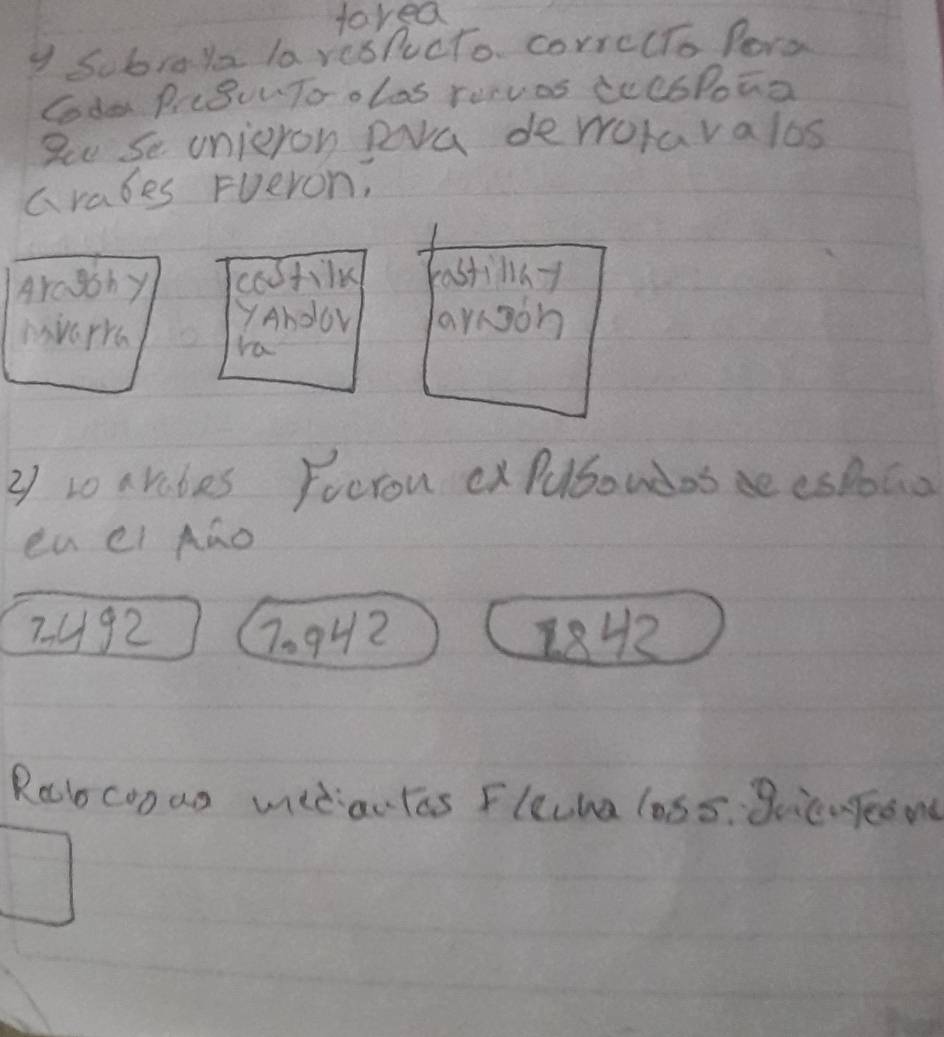 tarea
y subraya la respucto. correcto Para
Cada Pregunto o Los reruos de esPoña
que se unieron para derrotar a los
arabes Fueron.
Aragón y
navarra
castilla
y Andor
ra
castilla y
aragón
2) lo arabes Fueron exPulsoudos de esPaña
en el Año
1.492
1.942
1842
Relocona mediantes Flecha los s.guientes